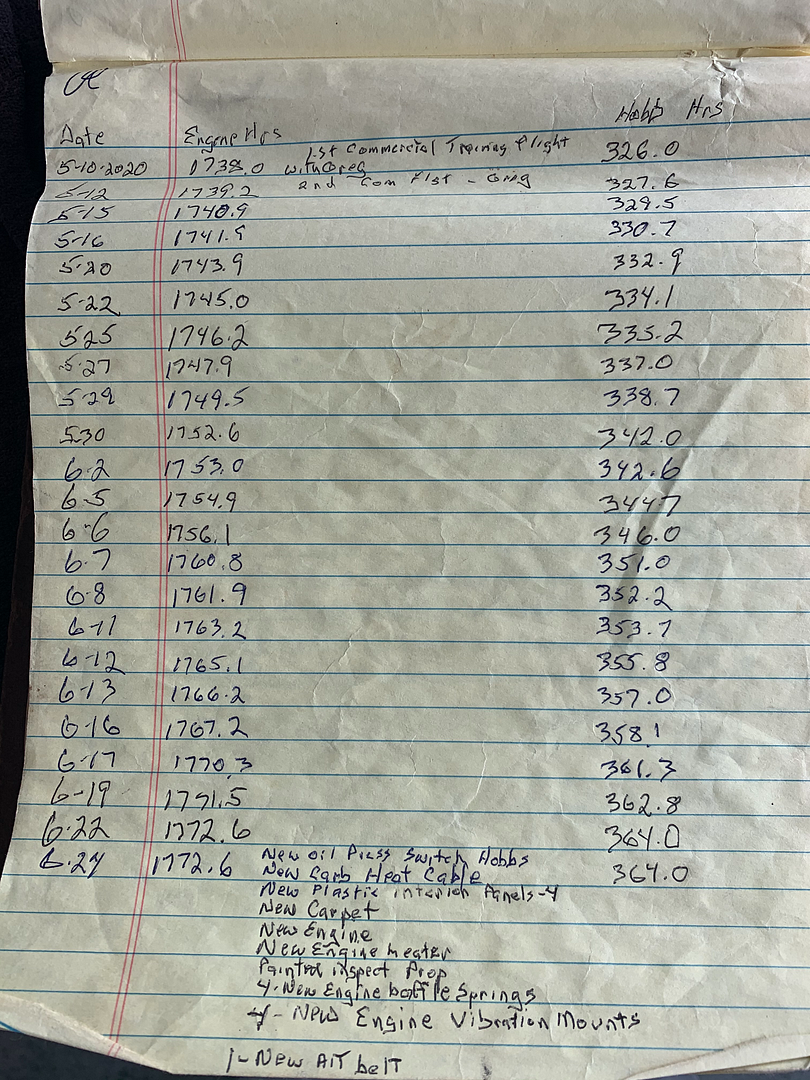 OK
Date Engine Hrs Hobb Hrs
5-10-2020 1738.0 1st Commercial Training Flight with Greg 326.0
5-12 1739.2 and Com Flst - Greg 327.6
5-15 1740.9 329.5
5-16 1741.9 330.7
5-20 1743.9 332.9
5-22 1745.0 334.1
5-25 1746.2 335.2
5-27 1747.9 337.0
5-29 1749.5 338.7
5-30 1752.6 342.0
6-2 1753.0 342.6
6-5 1754.9 344.7
6-6 1756.1 346.0
6-7 1760.8 351.0
6-8 1761.9 352.2
6-11 1763.2 353.7
6-12 1765.1 355.8
6-13 1766.2 357.0
6-16 1767.2 358.1
6-17 1770.3 361.3
6-19 1771.5 362.8
6-22 1772.6 364.0
6-24 1772.6 New Oil Press Switch Hobbs 364.0
New Carb Heat Cable
New Plastic interior Panels-4
New Carpet
New Engine
New Engine heater
Painted inspect Prop
4-New Engine baffle Springs
4- New Engine Vibration Mounts
1- New AlT belT